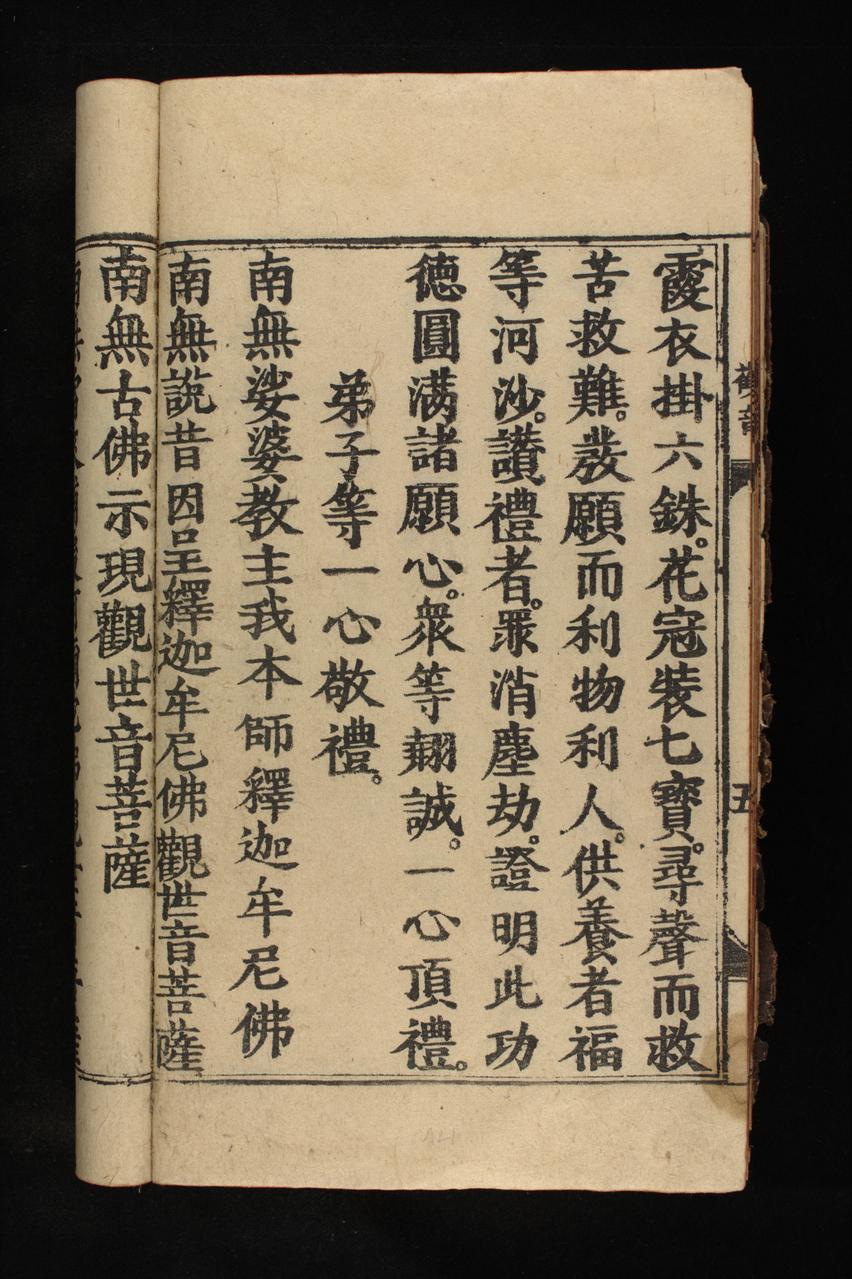 霞衣掛六銖。花冠裝七寶。尋聲而救
苦救難。發願而利物利人。供養者福
等河沙。讚禮者。罪消塵劫。證明此功
德圓满諸願心。衆等翹誠。一心頂禮。
弟子等一心敬禮。
南無娑婆教主我本師釋迦牟尼佛
南無說昔因呈釋迦牟尼佛觀世音菩薩
南無古佛示現觀世音菩薩
觀音
五